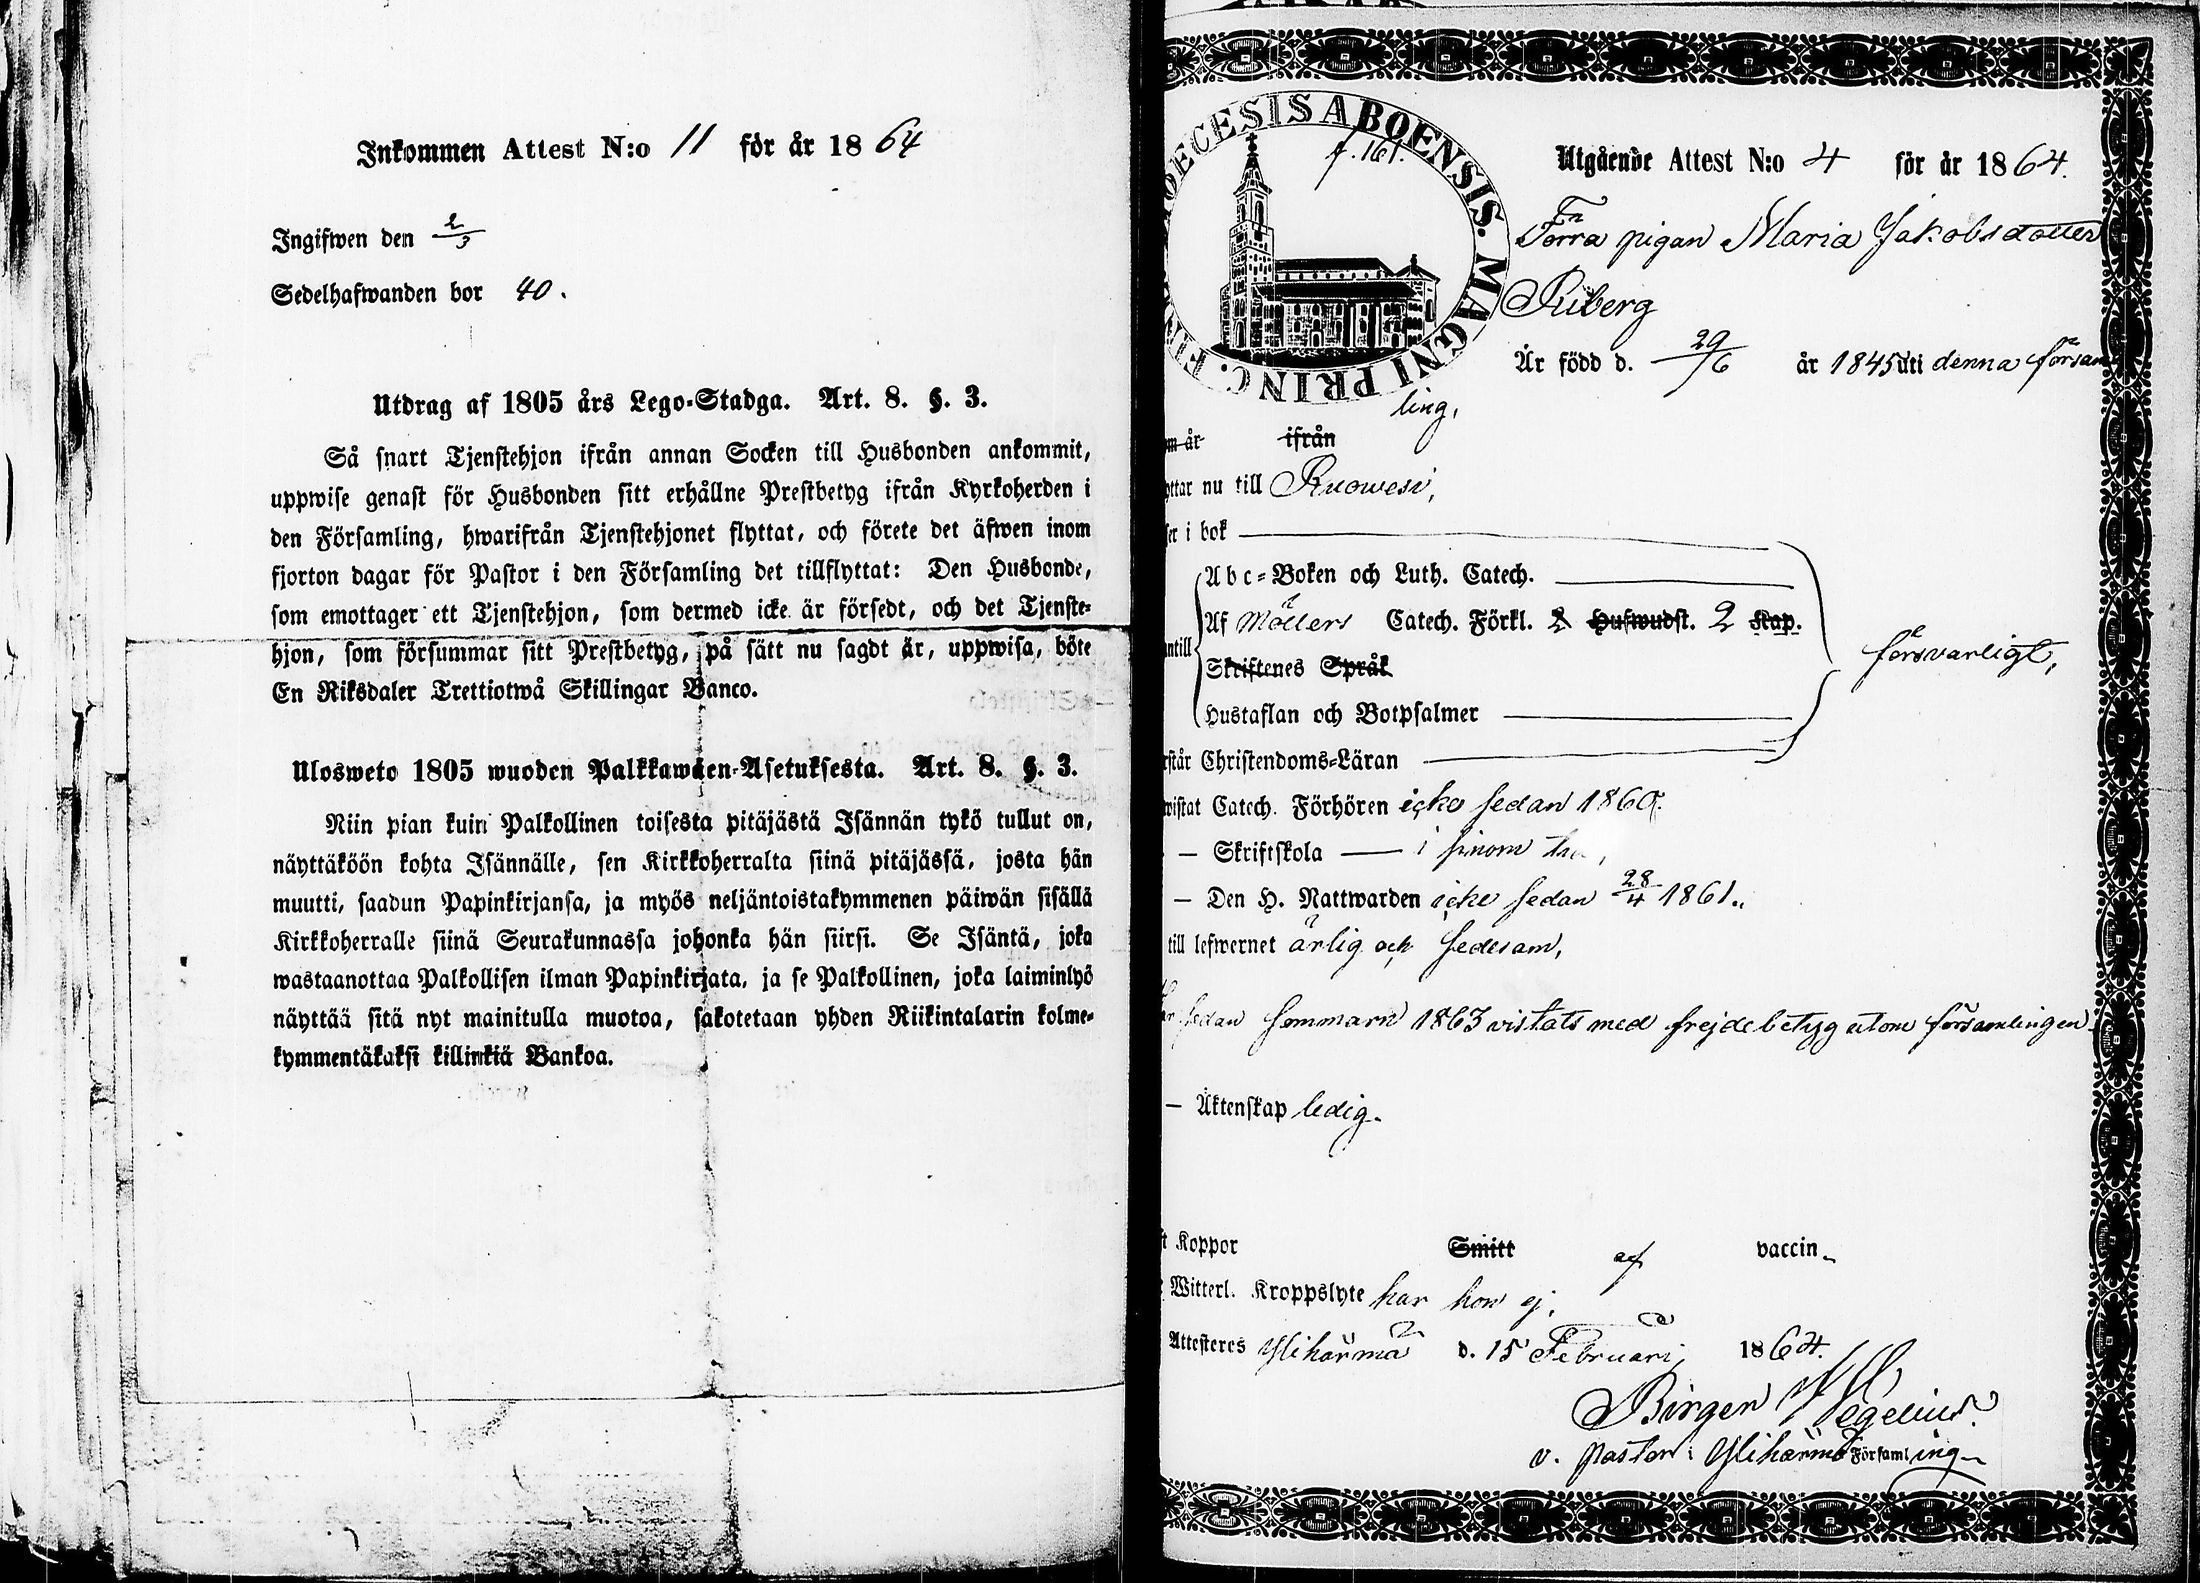 Inkommen Attest N:o 11 för år 1864
Ingifwen den 2/3
Sedelhafwanden bor 40.
Utdrag af 1805 års Lego-Stadga. Art. 8. §. 3.
Så snart Tjenstehjon ifrån annan Socken till Husbonden ankommit,
uppwise genast för Husbonden sitt erhållne Prestbetyg ifrån Kyrkoherden i
den Församling, hwarifrån Tjenstehjonet flyttat, och förete det äfwen inom
fjorton dagar för Pastor i den Församling det tillflyttat: Den Husbonde,
som emottager ett Tjenstehjon, som dermed icke är försedt, och det Tjenste-
hjon, som försummar sitt Prestbetyg, på sätt nu sagdt är, uppwisa, böte
En Riksdaler Trettiotwå Skillingar Banco.
Ulosweto 1805 wuoden Palkkawäen-Asetuksesta. Art. 8. §. 3.
Niin pian kuin Palkollinen toisesta pitäjästä Isännän tykö tullut on,
näyttäköön kohta Isännälle, sen Kirkkoherralta siinä pitäjässä, josta hän
muutti, saadun Papinkirjansa, ja myös neljäntoistakymmenen päiwän sisällä
Kirkkoherralle siinä Seurakunnassa johonka hän siirsi. Se Isäntä, joka
wastaanottaa Palkollisen ilman Papinkirjata, ja se Palkollinen, joka laiminlyö
näyttää sitä nyt mainitulla muotoa, sakotetaan yhden Riikintalarin kolme-
kymmentäkaksi killinkiä Bankoa.
DIOECESIS ABOENSIS. MAGNI PRINC. FIN
f. 161.
Utgående Attest N:o 4 för år 1864.
Förra pigan Maria Jakobsdotter
Riberg
Är född d. 29/6 år 1845 uti denna försam
ling,
om år ifrån
yttar nu till Ruowesi,
ser i bok
Abc-Boken och Luth. Catech.
Af Möllers Catech. Förkl. Hufwudst. 2 Kap.
antill
Skriftenes Språk
försvarligt,
Hustaflan och Botpsalmer
rstår Christendoms-Läran
wistat Catech. Förhören icke sedan 1860.
— Skriftskola — i sinom
— Den H. Nattwarden icke sedan 28/4 1861.
till lefwernet ärlig och sedesam,
sedan sommarn 1863 vistats med frejdebetyg utom församlingen
— Äktenskap ledig.
ft Koppor Smitt af vaccin
Witterl. Kroppslyte har hon ej.
Attesteres Ylihärmä d. 15 Februari 1864.
Birger Hegelius.
v. pastor i Ylihärmä Församling